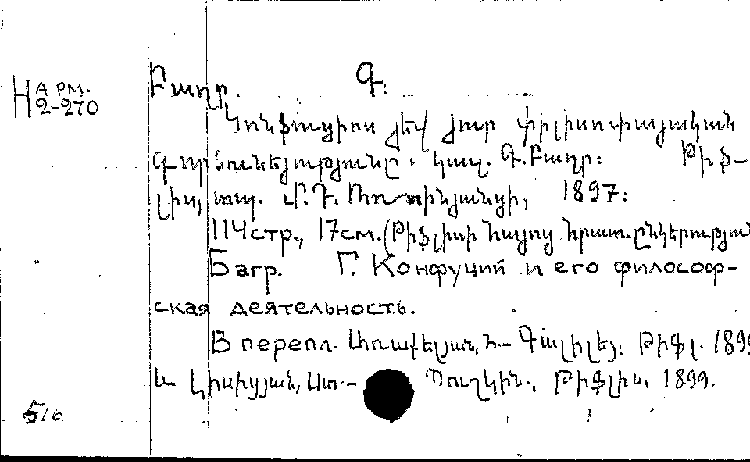 Н АРМ.
2-270
Բաղր. Գ.
Կոնֆուցիոս եւ յուր փիլիսոփայական
գործունեյությունը. կազ. Գ. Բաղր: Թիֆ-
լիս, տպ. Մ. Դ. Ռոտինյանցի, 1897:
114 стр., 17 см. (Թիֆլիսի հայոց հրատ. ընկերության
Багр. Г. Конфуций и его философ-
ская деятельность.
В перепл. Առաքելյան, Հ.- Գալիլեյ. Թիֆլ. 1899
և Լիսիցյան, Ստ.- Պուշկին., Թիֆլիս. 1899.
516